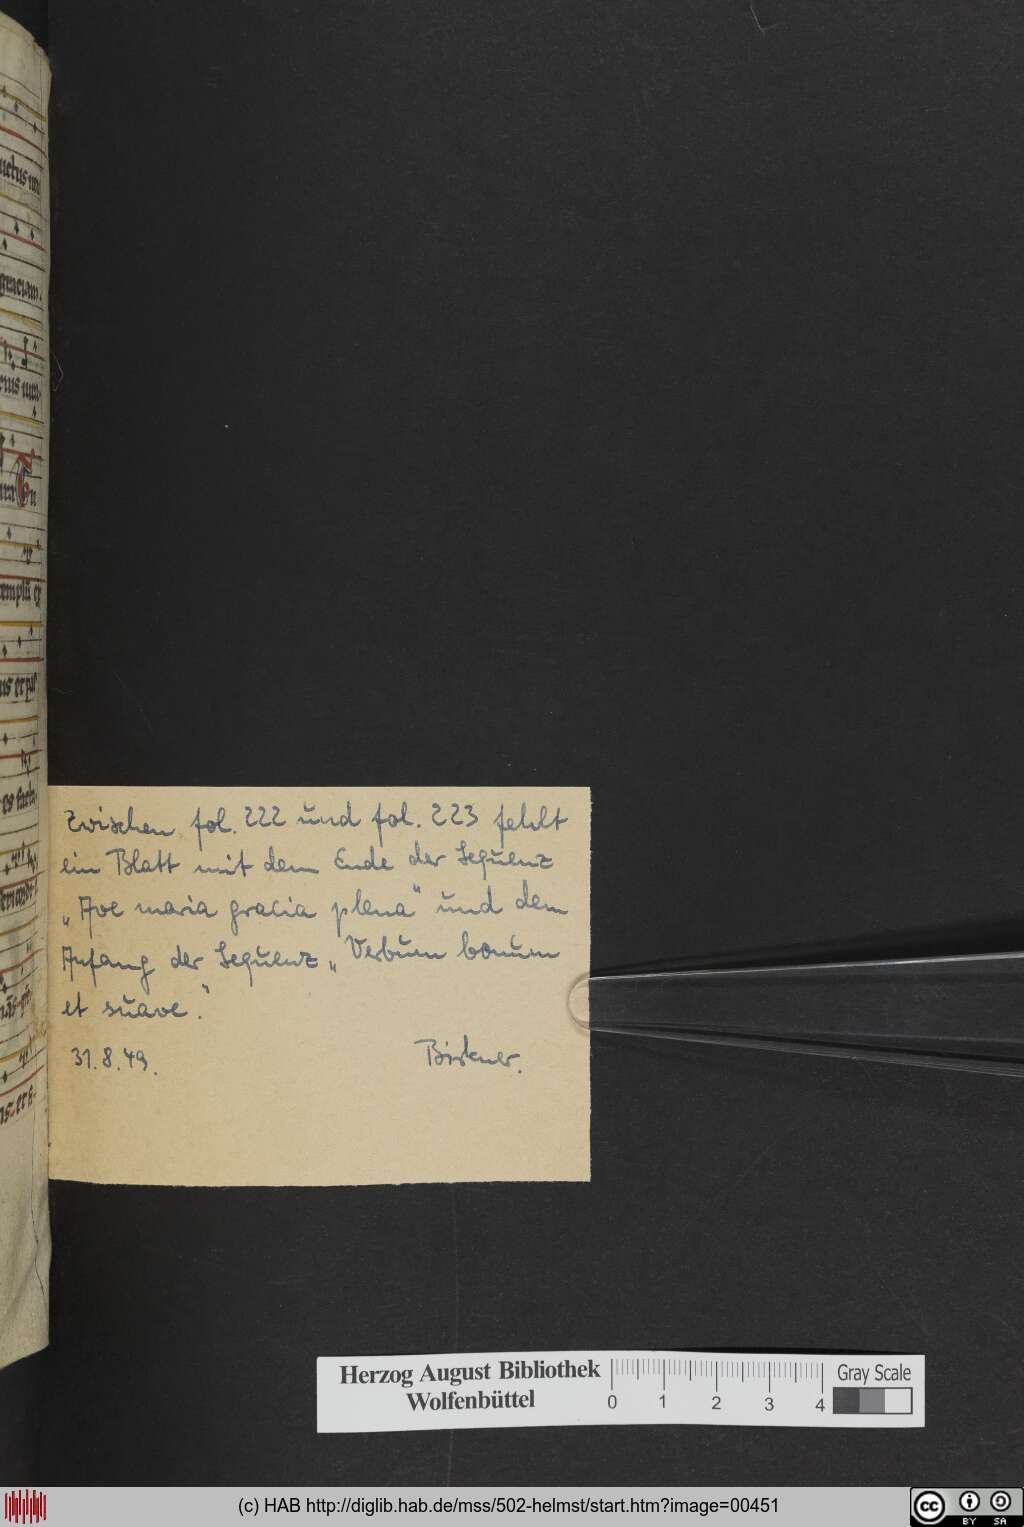 Zwischen fol. 222 und fol. 223 fehlt
ein Blatt mit dem Ende der Sequenz
„Ave maria gracia plena“ und dem
Anfang der Sequenz „Verbum bonum
et suave.“
31.8.49. Birkner.
Herzog August Bibliothek
Wolfenbüttel
0 1 2 3 4
Gray Scale
(c) HAB http://diglib.hab.de/mss/502-helmst/start.htm?image=00451
cc BY SA